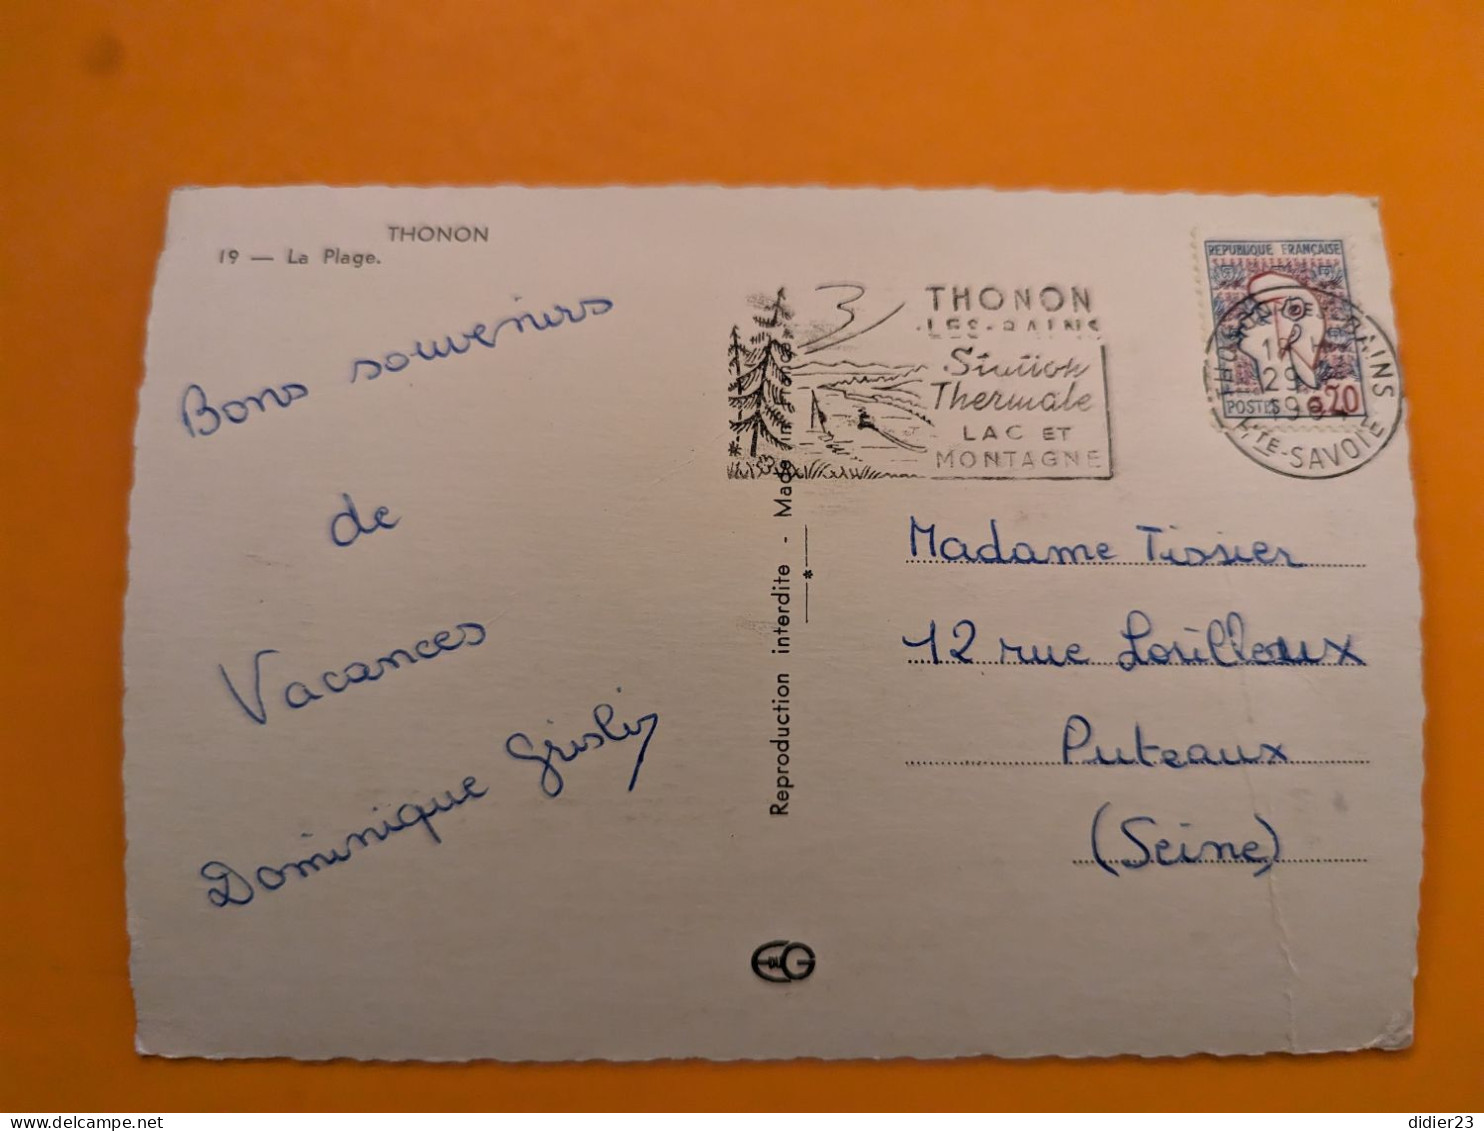 THONON
19 — La Plage.
Bons souvenirs
de
Vacances
Dominique
THONON
LES-BAINS
Station
Thermale
LAC ET
MONTAGNE
REPUBLIQUE FRANÇAISE
POSTES 0,20
THONON-LES-BAINS
29
HTE-SAVOIE
Reproduction interdite - Made in France
Madame Tissier
12 rue Lorilleux
Puteaux
(Seine)
EG
didier23